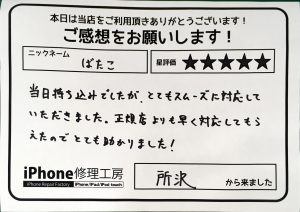 本日は当店をご利用頂きありがとうございます!
ご感想をお願いします!
ニックネーム
ばたこ
星評価 ★★★★★
当日持ち込みでしたが、とてもスムーズに対応して
いただきました。正規店よりも早く対応してもら
えたのでとても助かりました!
iPhone修理工房
iPhone Repair Factory iPhone/iPad/iPod touch
所沢 から来ました